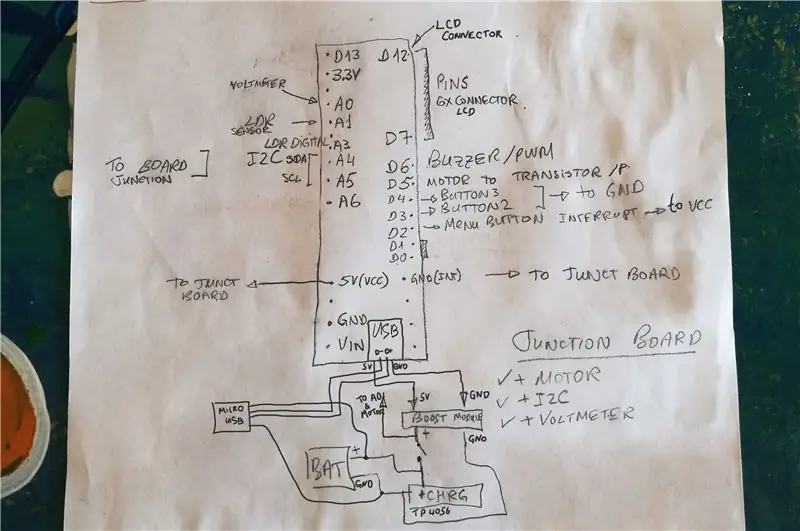 LCD
CONNECTOR
D13 D12
3.3V
VOLTMETER
A0
PINS
6X CONNECTOR
LCD
LDR
SENSOR
A1
LDR DIGITAL A3
D7
TO BOARD
JUNCTION
I2C SDA A4
SCL A5
A6
D6 BUZZER/PWM
D5 MOTOR TO TRANSISTOR/P.
D4 BUTTON3
D3 BUTTON2
TO GND
D2 MENU BUTTON INTERRUPT TO VCC
D1
D0
TO JUNCT
BOARD
5V(VCC) GND(INT) TO JUNCT BOARD
GND
VIN
USB
D- D+
5V GND
JUNCTION BOARD
✓ + MOTOR
✓ + I2C
✓ + VOLTMETER
MICRO
USB
TO A0
&
MOTOR
5V GND
BOOST MODULE
+ GND
BAT
+
GND
+ CHRG
TP4056